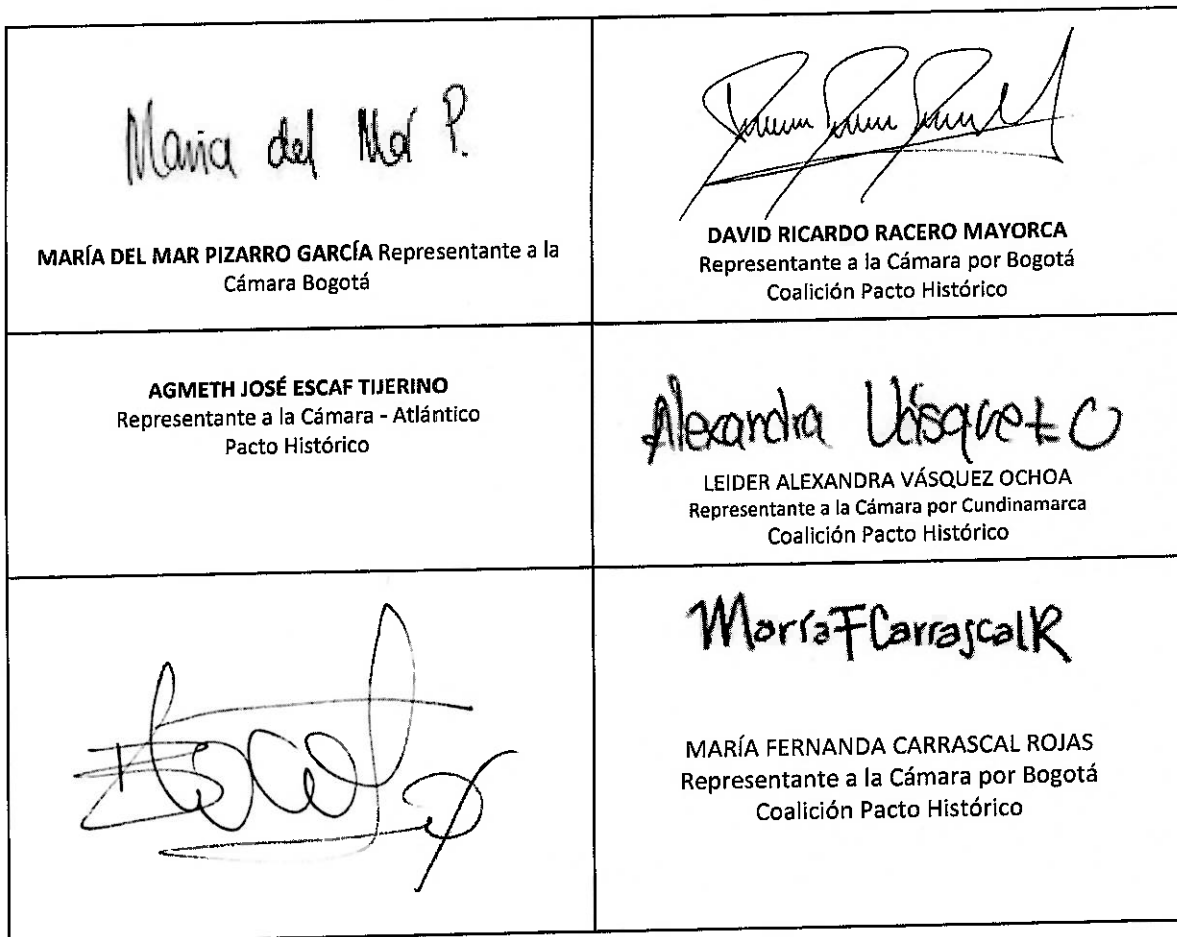 Maria del Mar P.
MARÍA DEL MAR PIZARRO GARCÍA Representante a la
Cámara Bogotá
DAVID RICARDO RACERO MAYORCA
Representante a la Cámara por Bogotá
Coalición Pacto Histórico
AGMETH JOSÉ ESCAF TIJERINO
Representante a la Cámara - Atlántico
Pacto Histórico
Alexandra Vásquez O
LEIDER ALEXANDRA VÁSQUEZ OCHOA
Representante a la Cámara por Cundinamarca
Coalición Pacto Histórico
MaríaFCarrascalR
MARÍA FERNANDA CARRASCAL ROJAS
Representante a la Cámara por Bogotá
Coalición Pacto Histórico